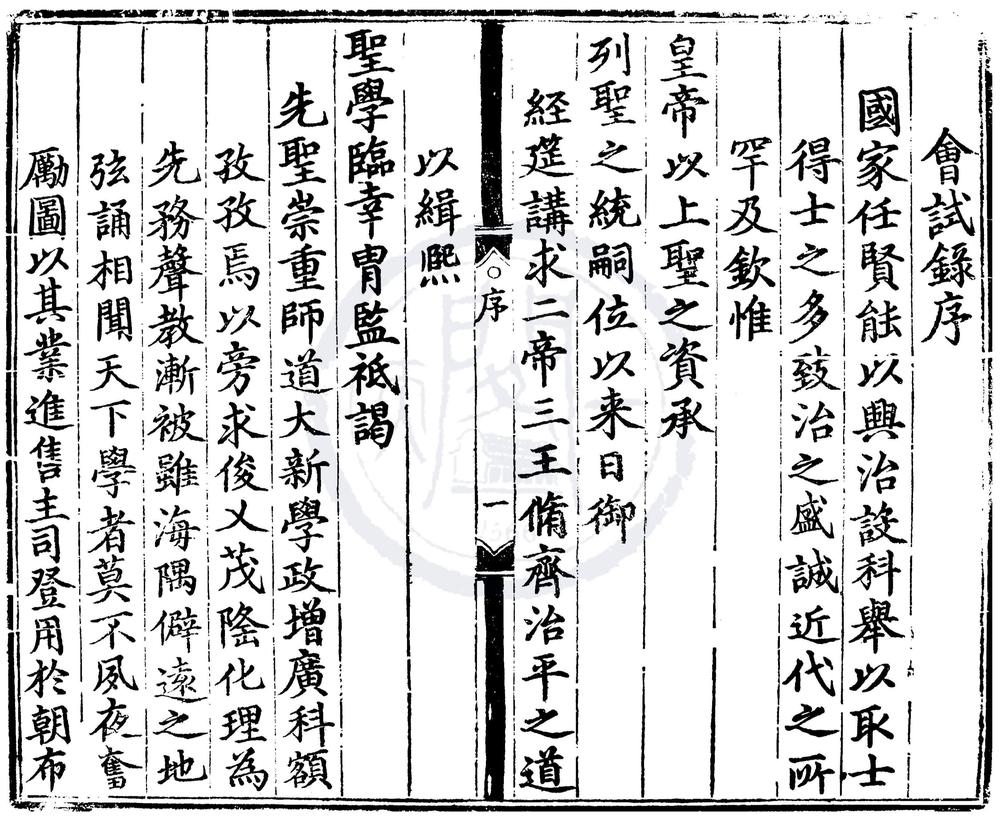 會試錄序
國家任賢能以興治設科舉以取士
得士之多致治之盛誠近代之所
罕及欽惟
皇帝以上聖之資承
列聖之統嗣位以来日御
經筵講求二帝三王脩齊治平之道
序
一
以緝熈
聖學臨幸胄監祇謁
先聖崇重師道大新學政增廣科額
孜孜焉以旁求俊乂茂隆化理為
先務聲教漸被雖海隅僻遠之地
弦誦相聞天下學者莫不夙夜奮
勵圖以其業進售主司登用於朝布